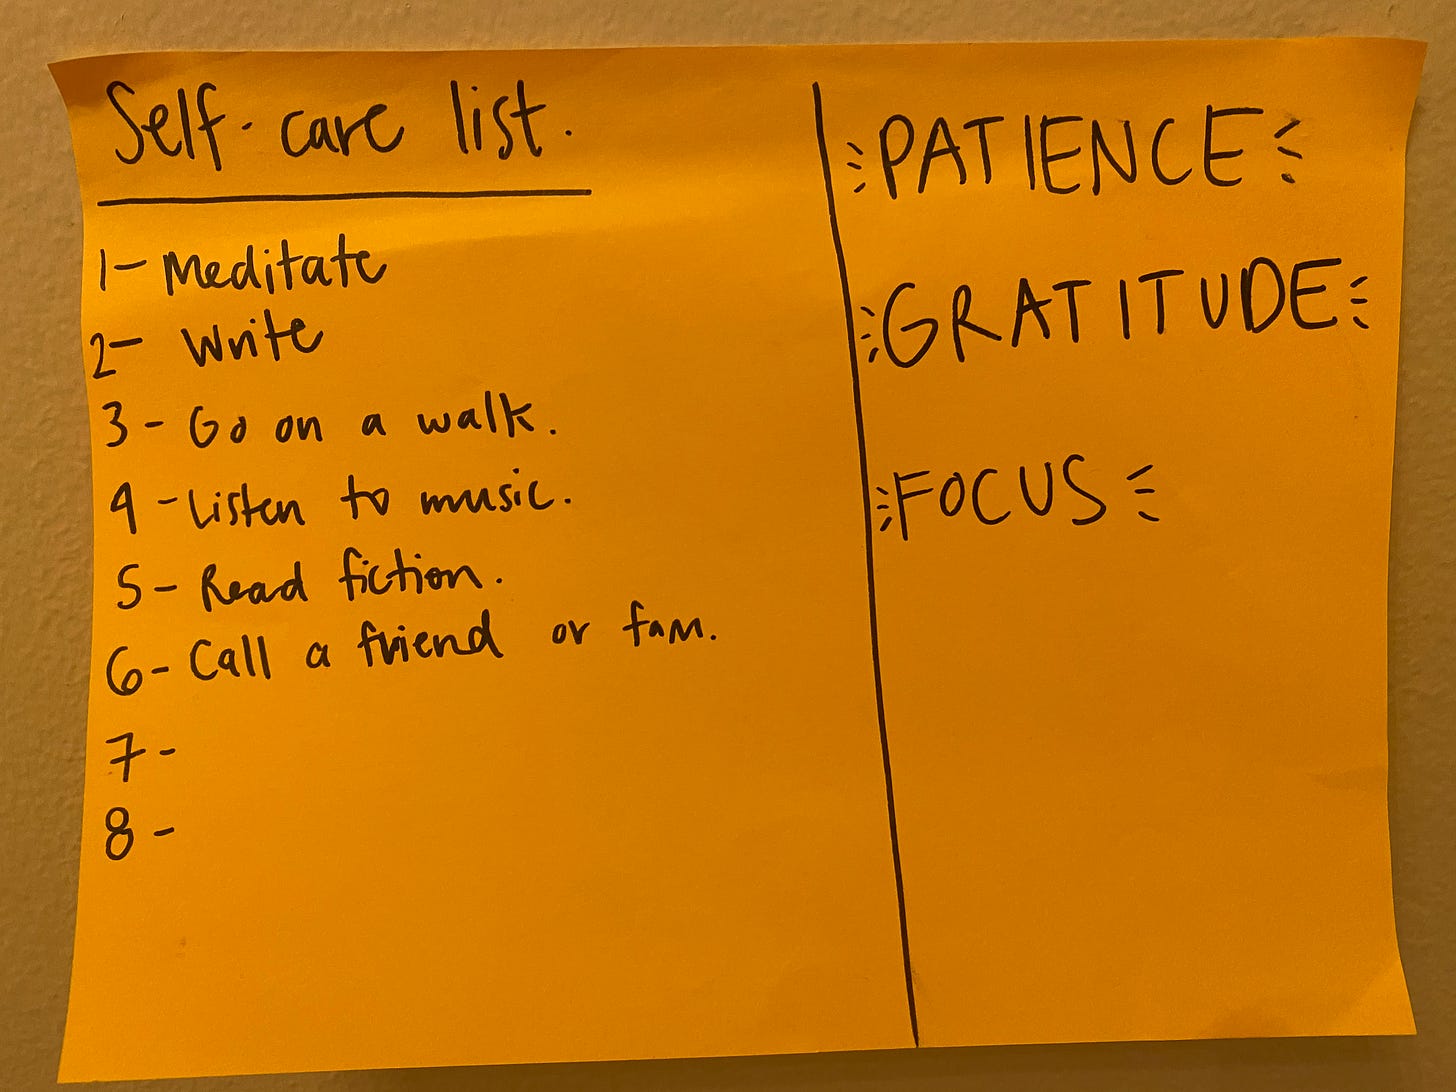 Self-care list.
1- Meditate
2- Write
3- Go on a walk.
4- Listen to music.
5- Read fiction.
6- Call a friend or fam.
7-
8-
PATIENCE
GRATITUDE
FOCUS